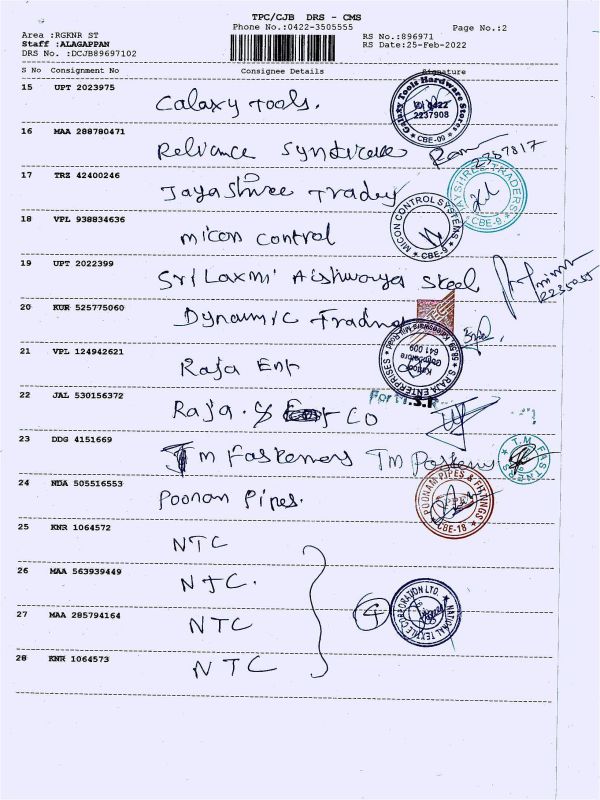 TPC/CJB DRS - CMS
Phone No.:0422-3505555
Page No.:2
Area :RGKNR ST
Staff :ALAGAPPAN
DRS No. :DCJB89697102
RS No.:896971
RS Date:25-Feb-2022
S No Consignment No Consignee Details Signature
15 UPT 2023975 Galaxy Tools.
Galaxy Tools Hardware Stores
0422
2237908
CBE-09
16 MAA 288780471 Reliance Syndicate
2387817
17 TRZ 42400246 Jayashree Tradey
JAYSHREE TRADERS
CBE-9
18 VPL 938834636 micon control
MICON CONTROL SYSTEMS
CBE-9
19 UPT 2022399 Sri Laxmi Aishwarya Steel
2235055
20 KUR 525775060 Dynamic Trading
21 VPL 124942621 Raja Ent
S RAJA ENTERPRISES
Kattoor
Coimbatore
641 009
22 JAL 530156372 Raja. & Co
For
23 DDG 4151669 Tm Fasteners Tm Fasteners
T.M. FASTNERS
24 NDA 505516553 Poonam Pipes.
POONAM PIPES & FITTINGS
CBE-18
25 KNR 1064572 NTC
26 MAA 563939449 NTC.
27 MAA 285794164 NTC
NATIONAL TEXTILE CORPORATION LTD.
28 KNR 1064573 NTC